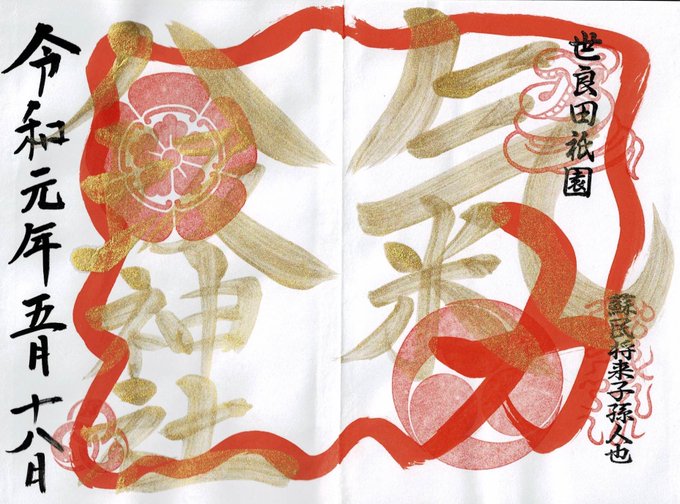 世良田祇園
蘇民将来子孫人也
氣
八坂神社
令和元年五月十八日